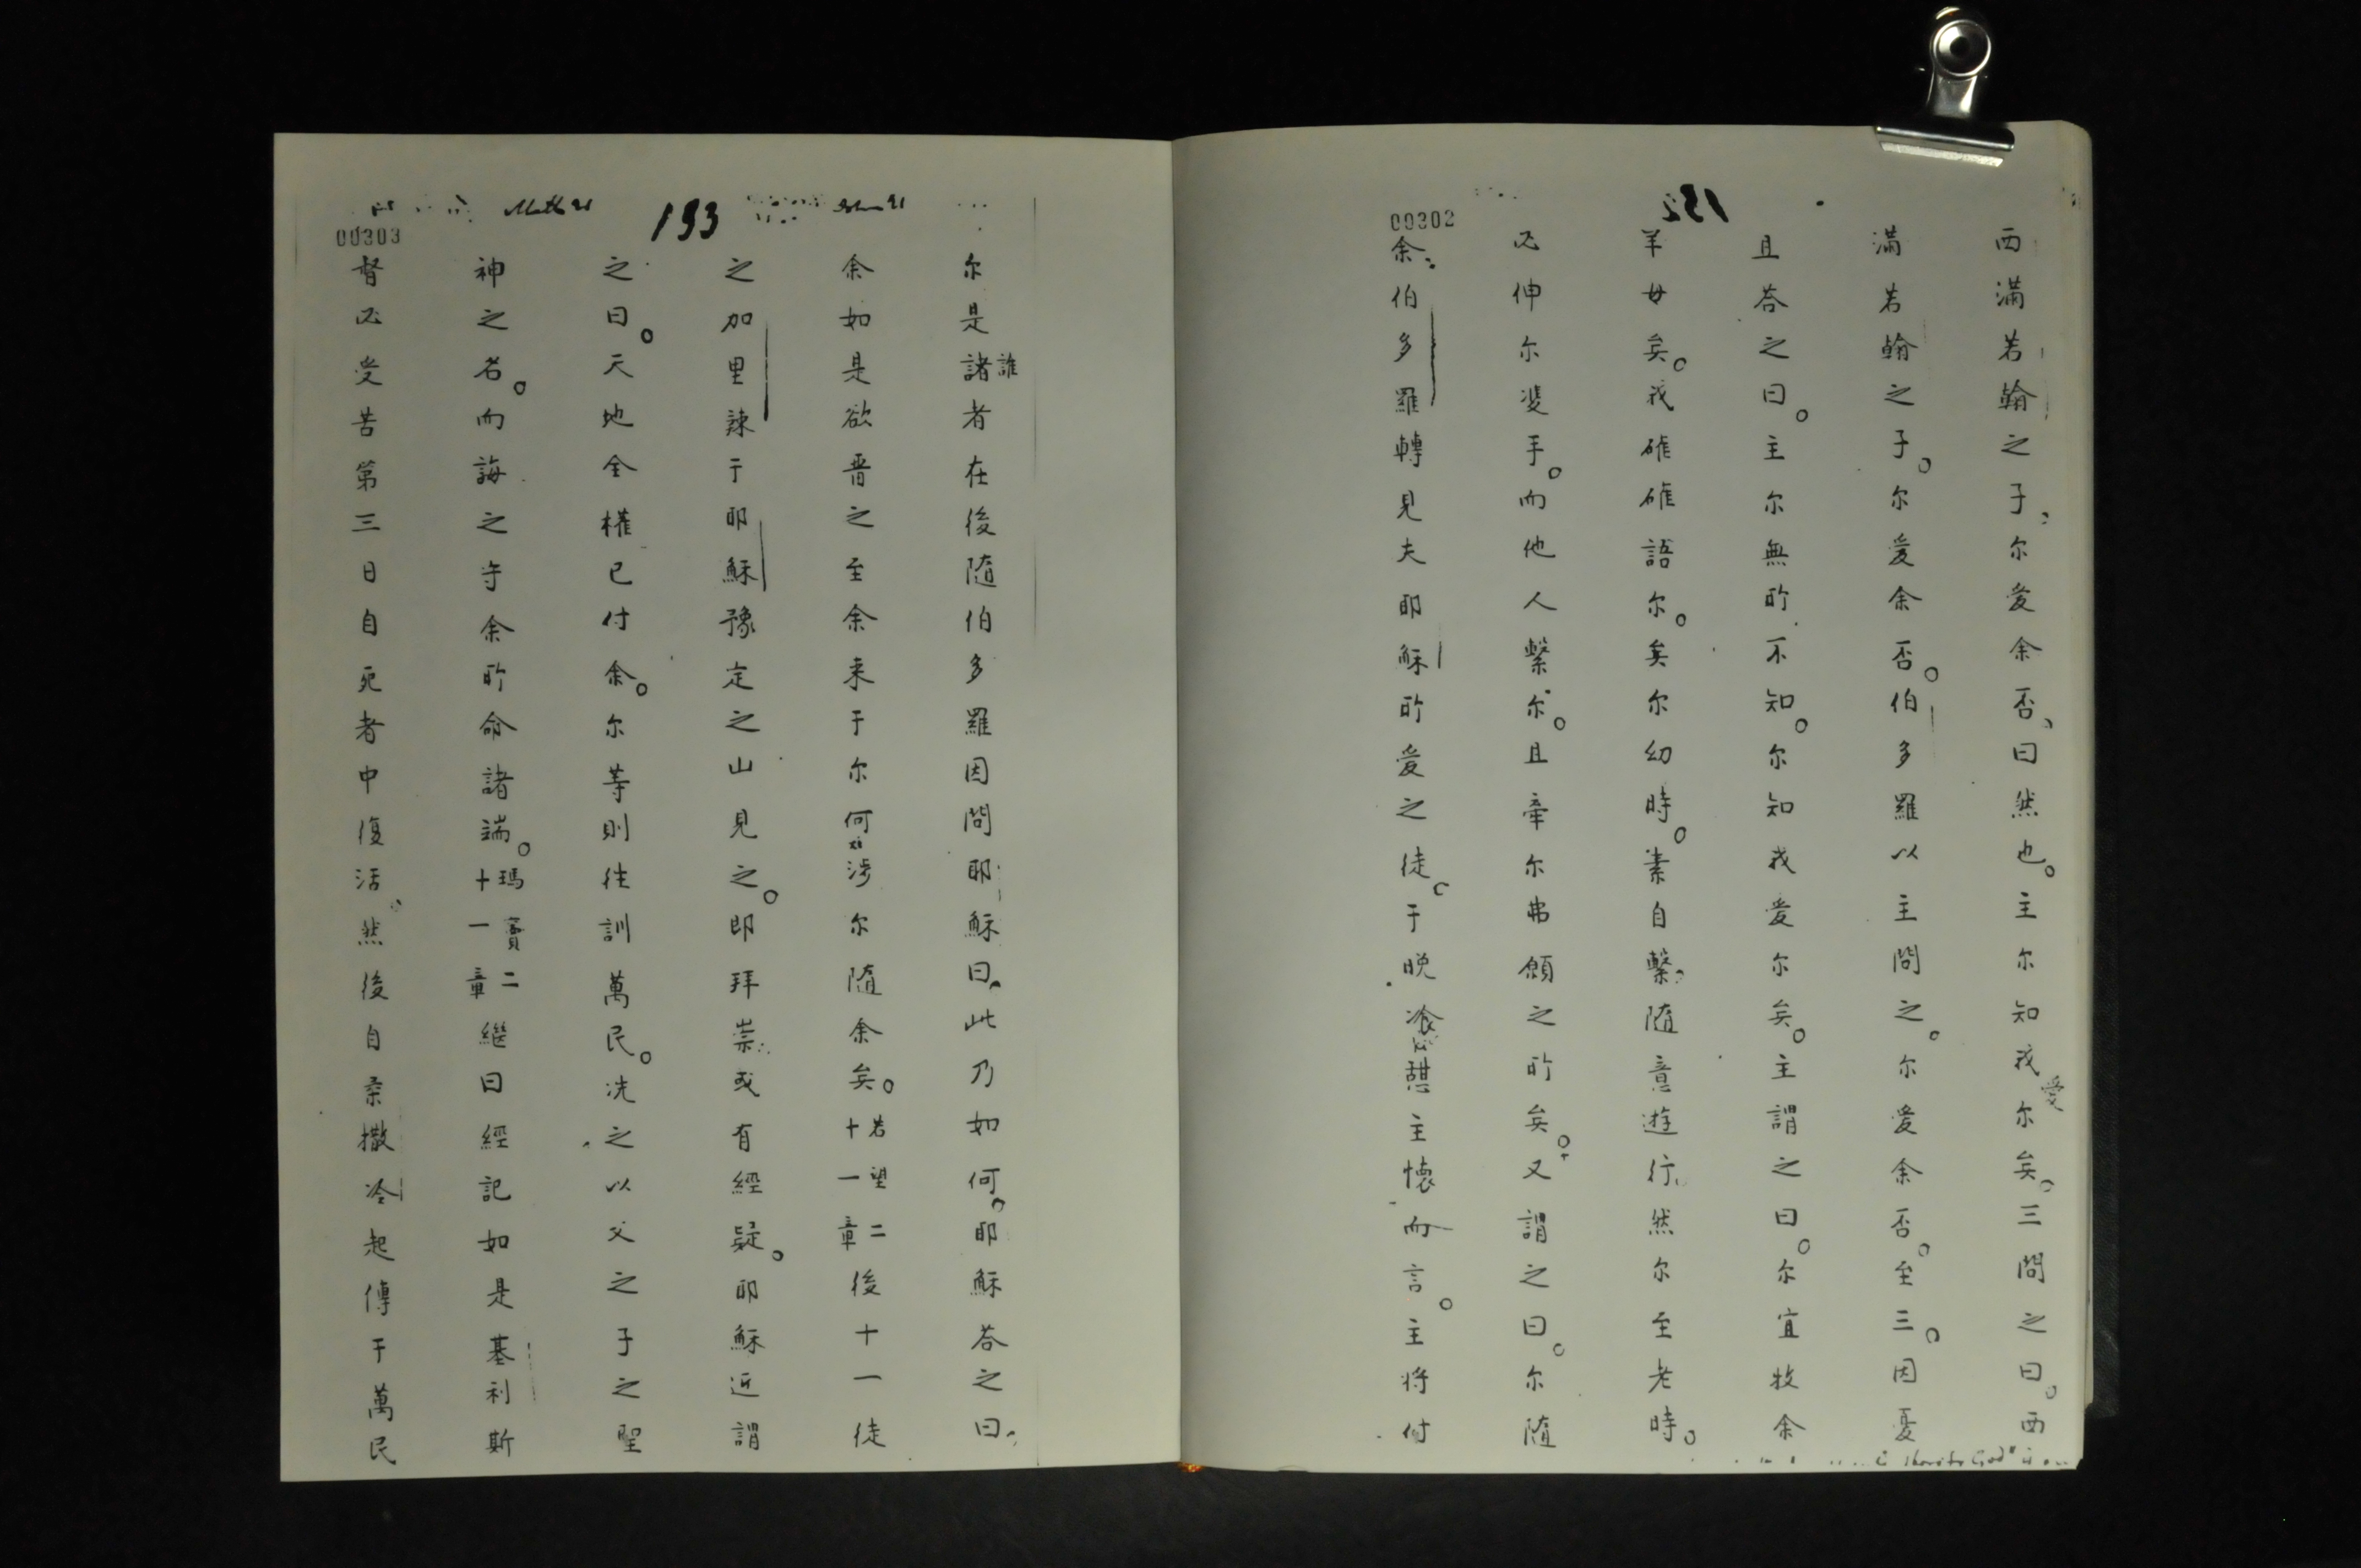 152
00302
西滿若翰之子尔爱余否、曰然也。主尔知我愛尔矣。三問之曰。西
滿若翰之子。尔爱余否。伯多羅以主問之。尔爱余否。至三。因憂
且荅之曰。主尔無所不知。尔知我爱尔矣。主謂之曰。尔宜牧余
羊女矣。我確確語尔。矣尔幼時。素自繫随意遊行、然尔至老時。
必伸尔雙手。而他人繫尔。且牽尔弗願之所矣。又謂之曰。尔随
余。伯多羅轉見夫耶穌所爱之徒。于晚飡憇主懐而言。主将付
133
00303
John 21
Math 21
尔是諸誰者在後随伯多羅因問耶穌曰。此乃如何。耶穌荅之曰。
余如是欲晋之至余来于尔何涉尔随余矣。若望二十一章後十一徒
之加里諫于耶穌豫定之山見之。即拜崇或有經疑。耶穌近謂
之曰。天地全權已付余。尔等則往訓萬民。洗之以父之子之聖
神之名。而誨之守余所命諸端。瑪竇二十一章繼曰經記如是基利斯
督必受苦第三日自死者中復活。然後自柔撒冷起傳于萬民